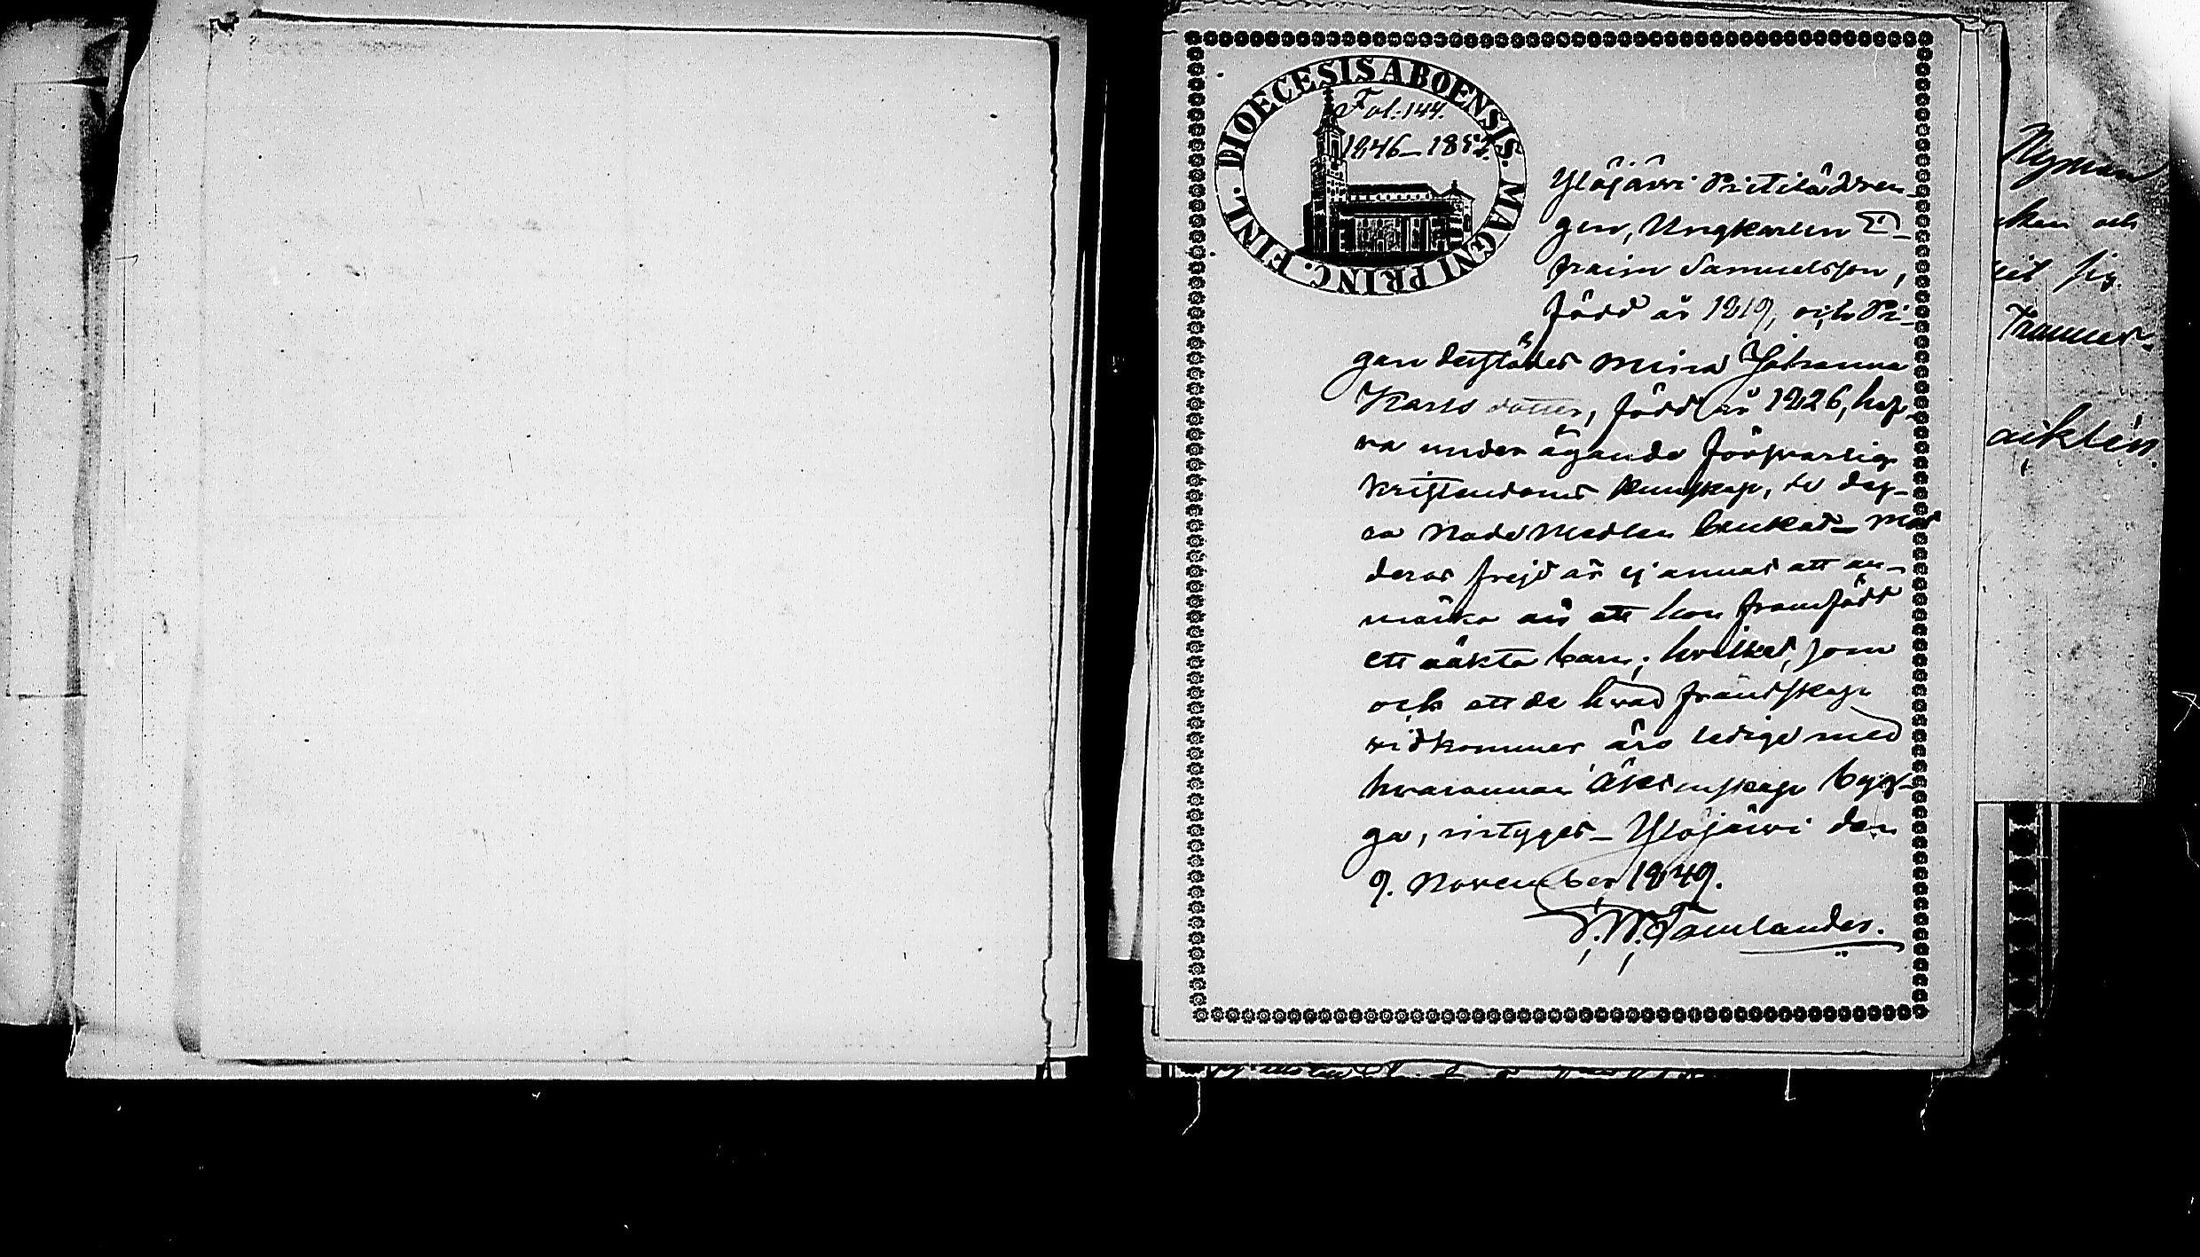 DIOECESIS ABOENSIS. MAGNI PRINC. FINL.
Fol: 144.
1846–1852.
Ylöjärvi
gen, Ungkarlen E-
fraim Samuelsson,
född år 1819, och Pi-
gan derstädes Mina Johanna
Karls dotter, född år 1826, haf-
va under ägande försvarlig
kristendoms kunskap, de dyr-
a Nade Medlen brukat – mot
deras frejd är ej annat att an-
märka än att hon framfödt
ett oäkta barn; hvilket, som
och att de hvad frändskap
vidkommer äro ledige med
hvarannan Äktenskap byg-
ga, intygas – Ylöjärvi den
9. November 1849.
Tamlander.
Nyman
ken och
sig.